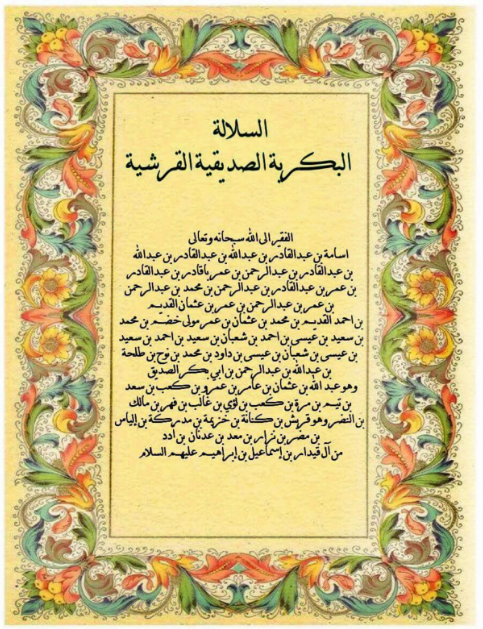 السلالة
البكرية الصديقية القرشية
الفقير الى الله سبحانه وتعالى
اسامة بن عبدالقادر بن عبدالله بن عبدالقادر بن عبدالله
بن عبدالقادر بن عبدالرحمن بن عمر باقادر بن عبدالقادر
بن عمر بن عبدالقادر بن عبدالرحمن بن محمد بن عبدالرحمن
بن عمر بن عبدالرحمن بن عمر بن عثمان القديم
بن احمد القديم بن محمد بن عثمان بن عمر مولى خضم بن محمد
بن سعيد بن عيسى بن احمد بن شعبان بن سعيد بن احمد بن سعيد
بن عيسى بن شعبان بن عيسى بن داود بن محمد بن نوح بن طلحة
بن عبدالله بن عبدالرحمن بن ابي بكر الصديق
وهو عبد الله بن عثمان بن عامر بن عمرو بن كعب بن سعد
بن تيم بن مرة بن كعب بن لؤي بن غالب بن فهر بن مالك
بن النضر وهو قريش بن كنانة بن خزيمة بن مدركة بن إلياس
بن مضر بن نزار بن معد بن عدنان بن أدد
من آل قيدار بن إسماعيل بن إبراهيم عليهم السلام